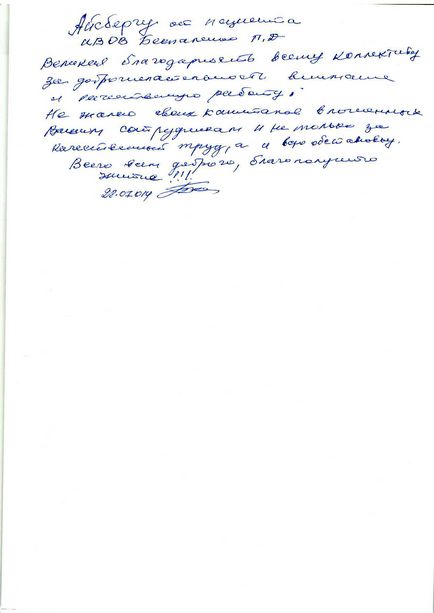 Айсбергу от пациента
ИВОВ Беспаленко П.Д
Великая благодарность всему коллективу
за доброжелательность внимание
и качественную работу.
Не жалею своих капиталов вложенных
Вашим сотрудникам и не только за
качественный труд, а и всю обстановку.
Всего вам доброго, благополучного
жития !!!
22.07.014